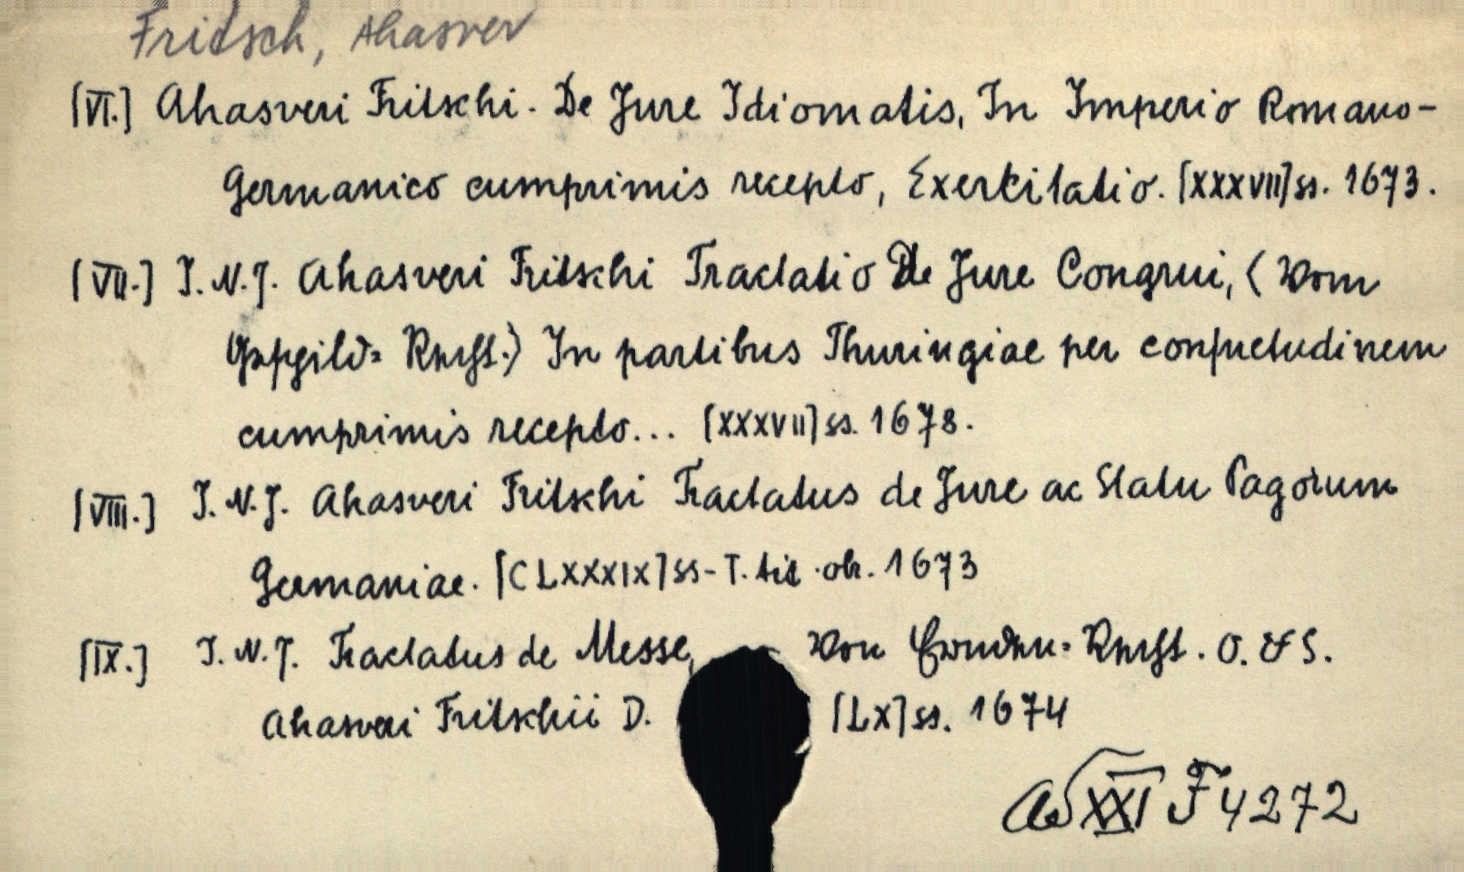 Fritsch, Ahasver
[VI.] Ahasveri Fritschi. De Jure Idiomatis, In Imperio Romano-
Germanico cumprimis recepto, Exercitatio. [XXXVII] ss. 1673.
[VII.] I.N.J. Ahasveri Fritschi Tractatio De Jure Congrui, (Vom
Gespild= Recht.) In partibus Thuringiae per consuetudinem
cumprimis recepto... [XXXVII] ss. 1678.
[VIII.] I.N.J. Ahasveri Fritschi Tractatus de Jure ac Statu Pagorum
Germaniae. [CLXXXIX] ss - T. tit. ob. 1673
[IX.] I.N.J. Tractatus de Messe, Von Erndten= Recht. O. & S.
Ahasveri Fritschii D. [LX] ss. 1674
XXI F 4272